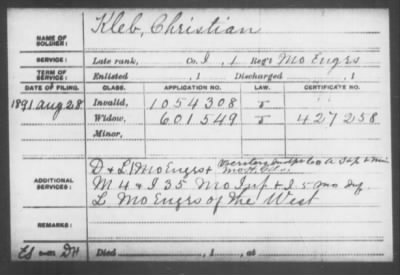 NAME OF SOLDIER: Kleb, Christian
SERVICE: Late rank, Co. I, 1 Reg't Mo Engrs
TERM OF SERVICE: Enlisted , 1 Discharged , 1
DATE OF FILING. CLASS. APPLICATION NO. LAW. CERTIFICATE NO.
1891 Aug 28 Invalid, 1054308
Widow, 601549 427258
Minor,
ADDITIONAL SERVICES: D + L 1 Mo Engrs +
M 4 & I 35 Mo Inf + I. 5 Mo Inf.
L Mo Engrs of the West
REMARKS:
Died , 1 , at